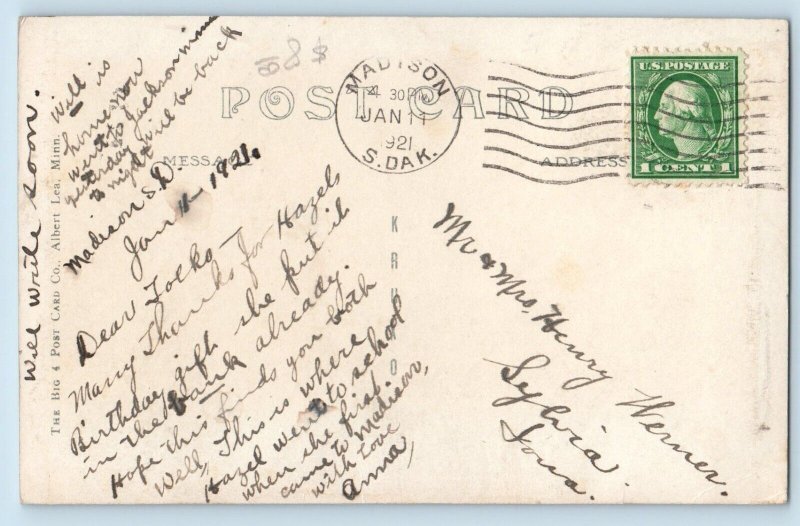 Will write soon.
Will is
home now
went to Jackson minn
yesterday
to night will be back
88 $
POST CARD
MESSA
ADDRESS
MADISON
4 30PM
JAN 11
1921
S. DAK.
U.S. POSTAGE
1 CENT 1
Madison S.D.
Jan 11 1921.
Dear Folks –
Many Thanks for Hazels
Birthday gift she put it
in the bank already.
Hope this finds you both
Well, This is where
Hazel went to school
when she first
came to Madison,
with love
Anna,
Mr & Mrs, Henry Werner.
Sylvia.
Iowa.
THE BIG 4 POST CARD CO., Albert Lea, Minn.
K R U O